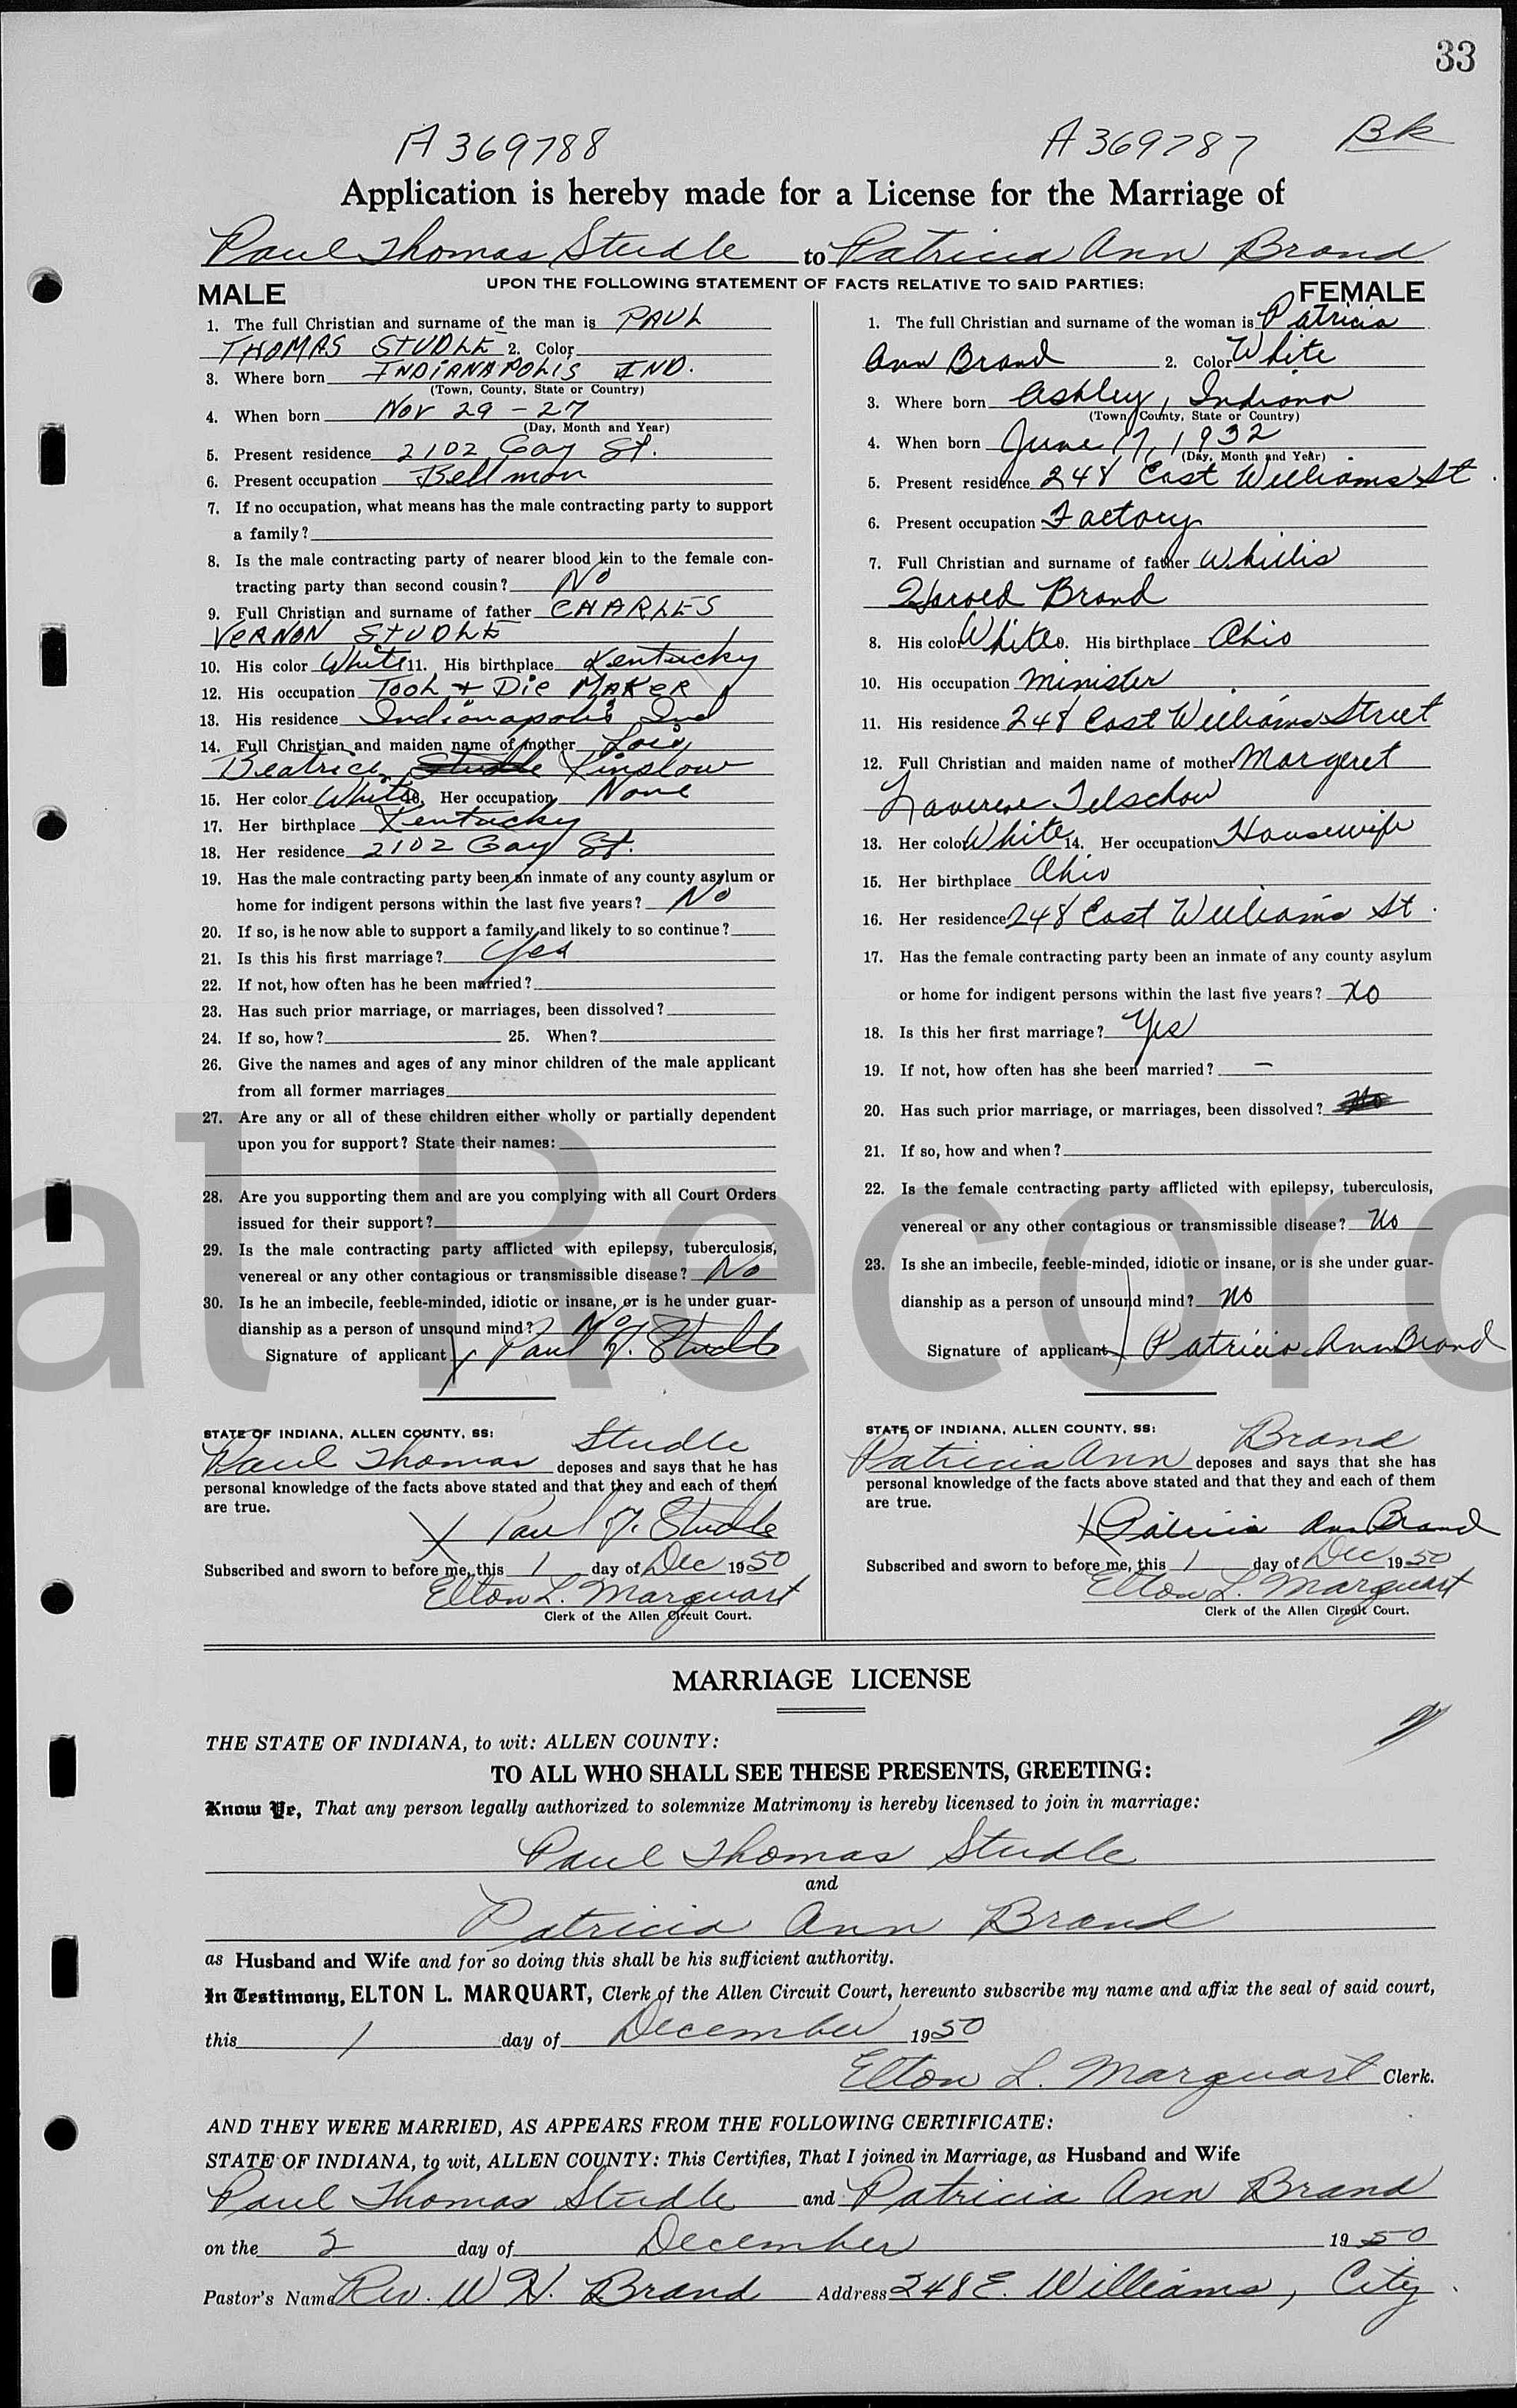 33
A369788 A369787 Bk
Application is hereby made for a License for the Marriage of
Paul Thomas Studle to Patricia Ann Brand
UPON THE FOLLOWING STATEMENT OF FACTS RELATIVE TO SAID PARTIES:
MALE
1. The full Christian and surname of the man is PAUL
THOMAS STUDLE 2. Color
3. Where born INDIANAPOLIS IND.
(Town, County, State or Country)
4. When born Nov 29 - 27
(Day, Month and Year)
5. Present residence 2102 Gay St.
6. Present occupation Bellman
7. If no occupation, what means has the male contracting party to support
a family?
8. Is the male contracting party of nearer blood kin to the female con-
tracting party than second cousin? No
9. Full Christian and surname of father CHARLES
VERNON STUDLE
10. His color White 11. His birthplace Kentucky
12. His occupation TOOL + DIE MAKER
13. His residence Indianapolis Ind
14. Full Christian and maiden name of mother Lois
Beatrice Studle Kinslow
15. Her color White 16. Her occupation None
17. Her birthplace Kentucky
18. Her residence 2102 Gay St.
19. Has the male contracting party been an inmate of any county asylum or
home for indigent persons within the last five years? No
20. If so, is he now able to support a family and likely to so continue?
21. Is this his first marriage? Yes
22. If not, how often has he been married?
23. Has such prior marriage, or marriages, been dissolved?
24. If so, how? 25. When?
26. Give the names and ages of any minor children of the male applicant
from all former marriages
27. Are any or all of these children either wholly or partially dependent
upon you for support? State their names:
28. Are you supporting them and are you complying with all Court Orders
issued for their support?
29. Is the male contracting party afflicted with epilepsy, tuberculosis,
venereal or any other contagious or transmissible disease? No
30. Is he an imbecile, feeble-minded, idiotic or insane, or is he under guar-
dianship as a person of unsound mind? No
Signature of applicant X Paul T. Studle
STATE OF INDIANA, ALLEN COUNTY, SS:
Paul Thomas Studle deposes and says that he has
personal knowledge of the facts above stated and that they and each of them
are true.
X Paul T. Studle
Subscribed and sworn to before me, this 1 day of Dec 1950
Elton L. Marquart
Clerk of the Allen Circuit Court.
FEMALE
1. The full Christian and surname of the woman is Patricia
Ann Brand 2. Color White
3. Where born Ashley, Indiana
(Town, County, State or Country)
4. When born June 17, 1932
(Day, Month and Year)
5. Present residence 248 East Williams St.
6. Present occupation Factory
7. Full Christian and surname of father Whillis
Harold Brand
8. His color White 9. His birthplace Ohio
10. His occupation Minister
11. His residence 248 East Williams Street
12. Full Christian and maiden name of mother Margeret
Laverene Telschow
13. Her color White 14. Her occupation Housewife
15. Her birthplace Ohio
16. Her residence 248 East Williams St.
17. Has the female contracting party been an inmate of any county asylum
or home for indigent persons within the last five years? No
18. Is this her first marriage? Yes
19. If not, how often has she been married? —
20. Has such prior marriage, or marriages, been dissolved? No
21. If so, how and when?
22. Is the female contracting party afflicted with epilepsy, tuberculosis,
venereal or any other contagious or transmissible disease? No
23. Is she an imbecile, feeble-minded, idiotic or insane, or is she under guar-
dianship as a person of unsound mind? No
Signature of applicant X Patricia Ann Brand
STATE OF INDIANA, ALLEN COUNTY, SS:
Patricia Ann Brand deposes and says that she has
personal knowledge of the facts above stated and that they and each of them
are true.
X Patricia Ann Brand
Subscribed and sworn to before me, this 1 day of Dec 1950
Elton L. Marquart
Clerk of the Allen Circuit Court.
al Record
MARRIAGE LICENSE
THE STATE OF INDIANA, to wit: ALLEN COUNTY:
TO ALL WHO SHALL SEE THESE PRESENTS, GREETING:
Know Ye, That any person legally authorized to solemnize Matrimony is hereby licensed to join in marriage:
Paul Thomas Studle
and
Patricia Ann Brand
as Husband and Wife and for so doing this shall be his sufficient authority.
In Testimony, ELTON L. MARQUART, Clerk of the Allen Circuit Court, hereunto subscribe my name and affix the seal of said court,
this 1 day of December 1950
Elton L. Marquart Clerk.
AND THEY WERE MARRIED, AS APPEARS FROM THE FOLLOWING CERTIFICATE:
STATE OF INDIANA, to wit, ALLEN COUNTY: This Certifies, That I joined in Marriage, as Husband and Wife
Paul Thomas Studle and Patricia Ann Brand
on the 2 day of December 1950
Pastor's Name Rev. W H. Brand Address 248 E. Williams, City